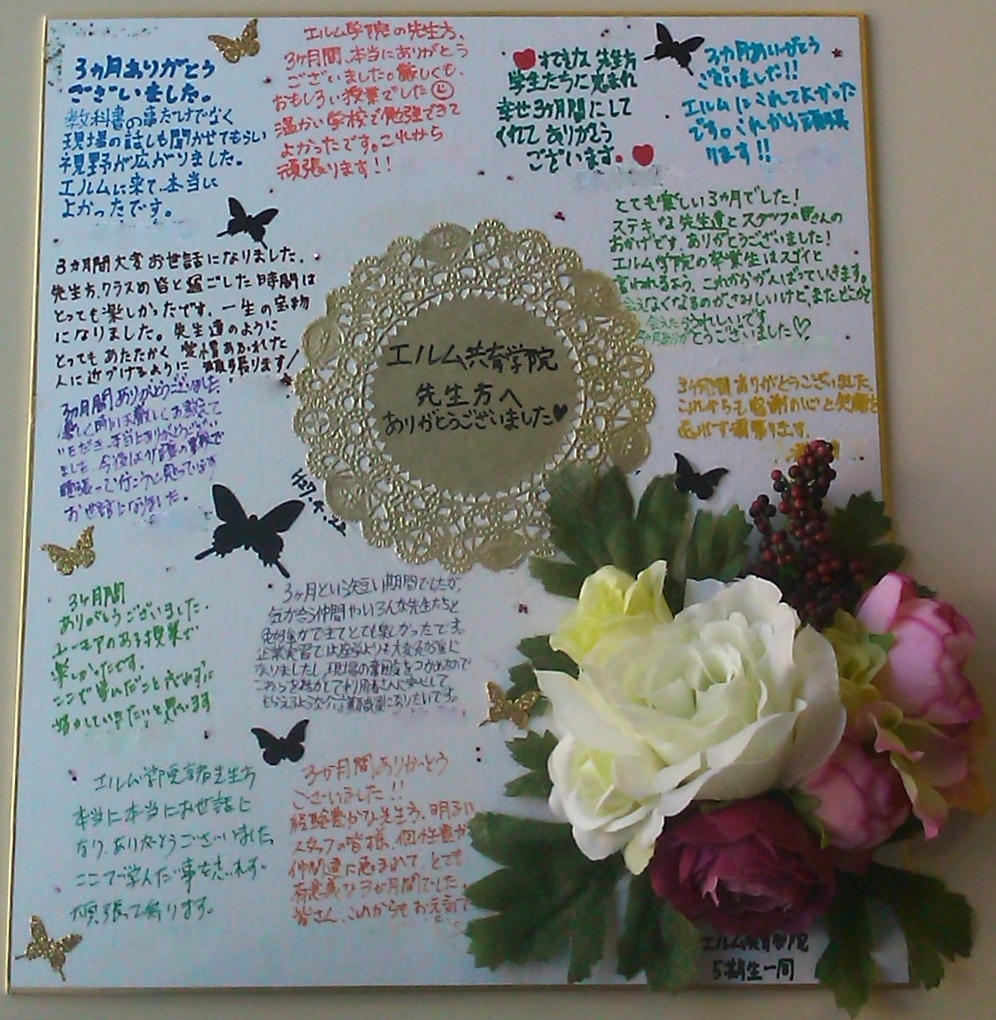 3ヵ月ありがとう
ございました。
教科書の事だけでなく
現場の話しも聞かせてもらい
視野が広がりました。
エルムに来て、本当に
よかったです。
エルム学院の先生方、
3ヶ月間、本当にありがとう
ございました。厳しくも、
おもしろい授業でした
温かい学校で勉強できて
よかったです。これから
頑張ります!!
すてきな 先生方
学生たちに恵まれ
幸せ3ヵ月間にして
くれて ありがとう
ございます。
3ヵ月ありがとう
ございました!!
エルムにこれてよかった
です。これから頑張
ります!!
とても楽しい3ヵ月でした!
ステキな先生達とスタッフの皆さんの
おかげです。ありがとうございました!
エルム学院の卒業生はスゴイと
言われるよう、これからがんばっていきます。
会えなくなるのがさみしいけど、またどこかで
会えたらうれしいです
3ヵ月ありがとうございました♡
3ヵ月間大変お世話になりました。
先生方、クラスの皆と過ごした時間は
とっても楽しかったです。一生の宝物
になりました。先生達のように
とってもあたたかく、愛情あふれた
人に近づけるように 頑張ります!
エルム共育学院
先生方へ
ありがとうございました♥
3ヶ月間ありがとうございました。
これからも感謝の心と笑顔を
忘れず頑張ります。
3ヵ月間ありがとうございました
ました。今後は介護の事
頑張って行こうと思っています
お世話になりました。
3ヶ月間
ありがとうございました。
ユーモアのある授業で
楽しかったです。
ここで学んだこと忘れずに
活かしていきたいと思います
3ヶ月という短い期間でしたが、
気が合う仲間やいろんな先生たちと
とても楽しかったです。
企業実習では座学よりも大変
なりましたし、現場の雰囲気をつかめたので
これらを活かして利用者さんに安心して
もらえるような介護職員になりたいです。
エルム学院 先生方
本当に本当にお世話に
なり、ありがとうございました
ここで学んだ事を忘れず
頑張って参ります。
3か月間ありがとう
ございました!!
経験豊かな先生方、明るい
スタッフの皆様、個性豊か
仲間達に恵まれて、とても
有意義な3か月間でした。
皆さん、これからもお元気で
エルム共育学院
5期生一同